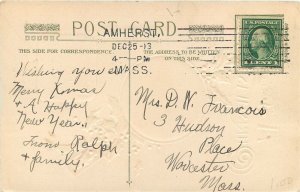 POST CARD
AMHERST,
DEC 25 '13
4 — PM
MASS.
THIS SIDE FOR CORRESPONDENCE
THE ADDRESS TO BE WRITTEN ON THIS SIDE
1 CENT 1
Wishing you a
Merry Xmas
& A Happy
New Year.
From Ralph
& family.
Mrs. D. W. Francois
3 Hudson
Place
Worcester
Mass.